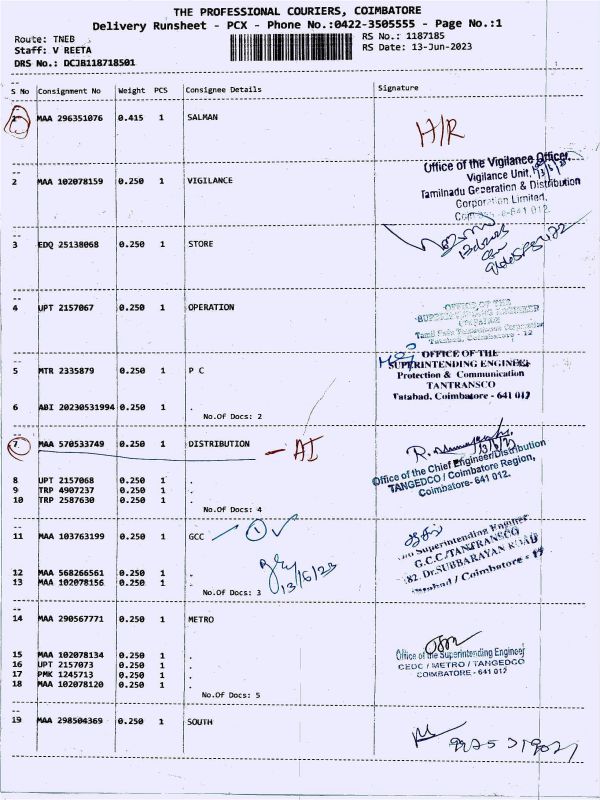 THE PROFESSIONAL COURIERS, COIMBATORE
Delivery Runsheet - PCX - Phone No.:0422-3505555 - Page No.:1
Route: TNEB
RS No.: 1187185
Staff: V REETA
RS Date: 13-Jun-2023
DRS No.: DCJB118718501
S No Consignment No Weight PCS Consignee Details Signature
1 MAA 296351076 0.415 1 SALMAN
H/R
Office of the Vigilance Officer,
Vigilance Unit,
2 MAA 102078159 0.250 1 VIGILANCE
Tamilnadu Generation & Distribution
Corporation Limited,
641 012.
3 EDQ 25138068 0.250 1 STORE
4 UPT 2157067 0.250 1 OPERATION
OFFICE OF THE
SUPERINTENDING ENGINEER
Tatabad, Coimbatore - 12
OFFICE OF THE
SUPERINTENDING ENGINEER
5 MTR 2335879 0.250 1 P C
Protection & Communication
TANTRANSCO
Tatabad, Coimbatore - 641 012
6 ABI 20230531994 0.250 1 .
No.Of Docs: 2
7 MAA 570533749 0.250 1 DISTRIBUTION - AI
Office of the Chief Engineer/Distribution
TANGEDCO / Coimbatore Region,
Coimbatore- 641 012.
8 UPT 2157068 0.250 1 .
9 TRP 4907237 0.250 1 .
10 TRP 2587630 0.250 1 .
No.Of Docs: 4
11 MAA 103763199 0.250 1 GCC 1
Superintending Engineer
G.C.C./TANTRANSCO
82, Dr.SUBBARAYAN ROAD
12 MAA 568266561 0.250 1 .
13 MAA 102078156 0.250 1 .
13/6/23
No.Of Docs: 3
14 MAA 290567771 0.250 1 METRO
Office of the Superintending Engineer
CEDC / METRO / TANGEDCO
COIMBATORE - 641 012
15 MAA 102078134 0.250 1 .
16 UPT 2157073 0.250 1 .
17 PMK 1245713 0.250 1 .
18 MAA 102078120 0.250 1 .
No.Of Docs: 5
19 MAA 298504369 0.250 1 SOUTH